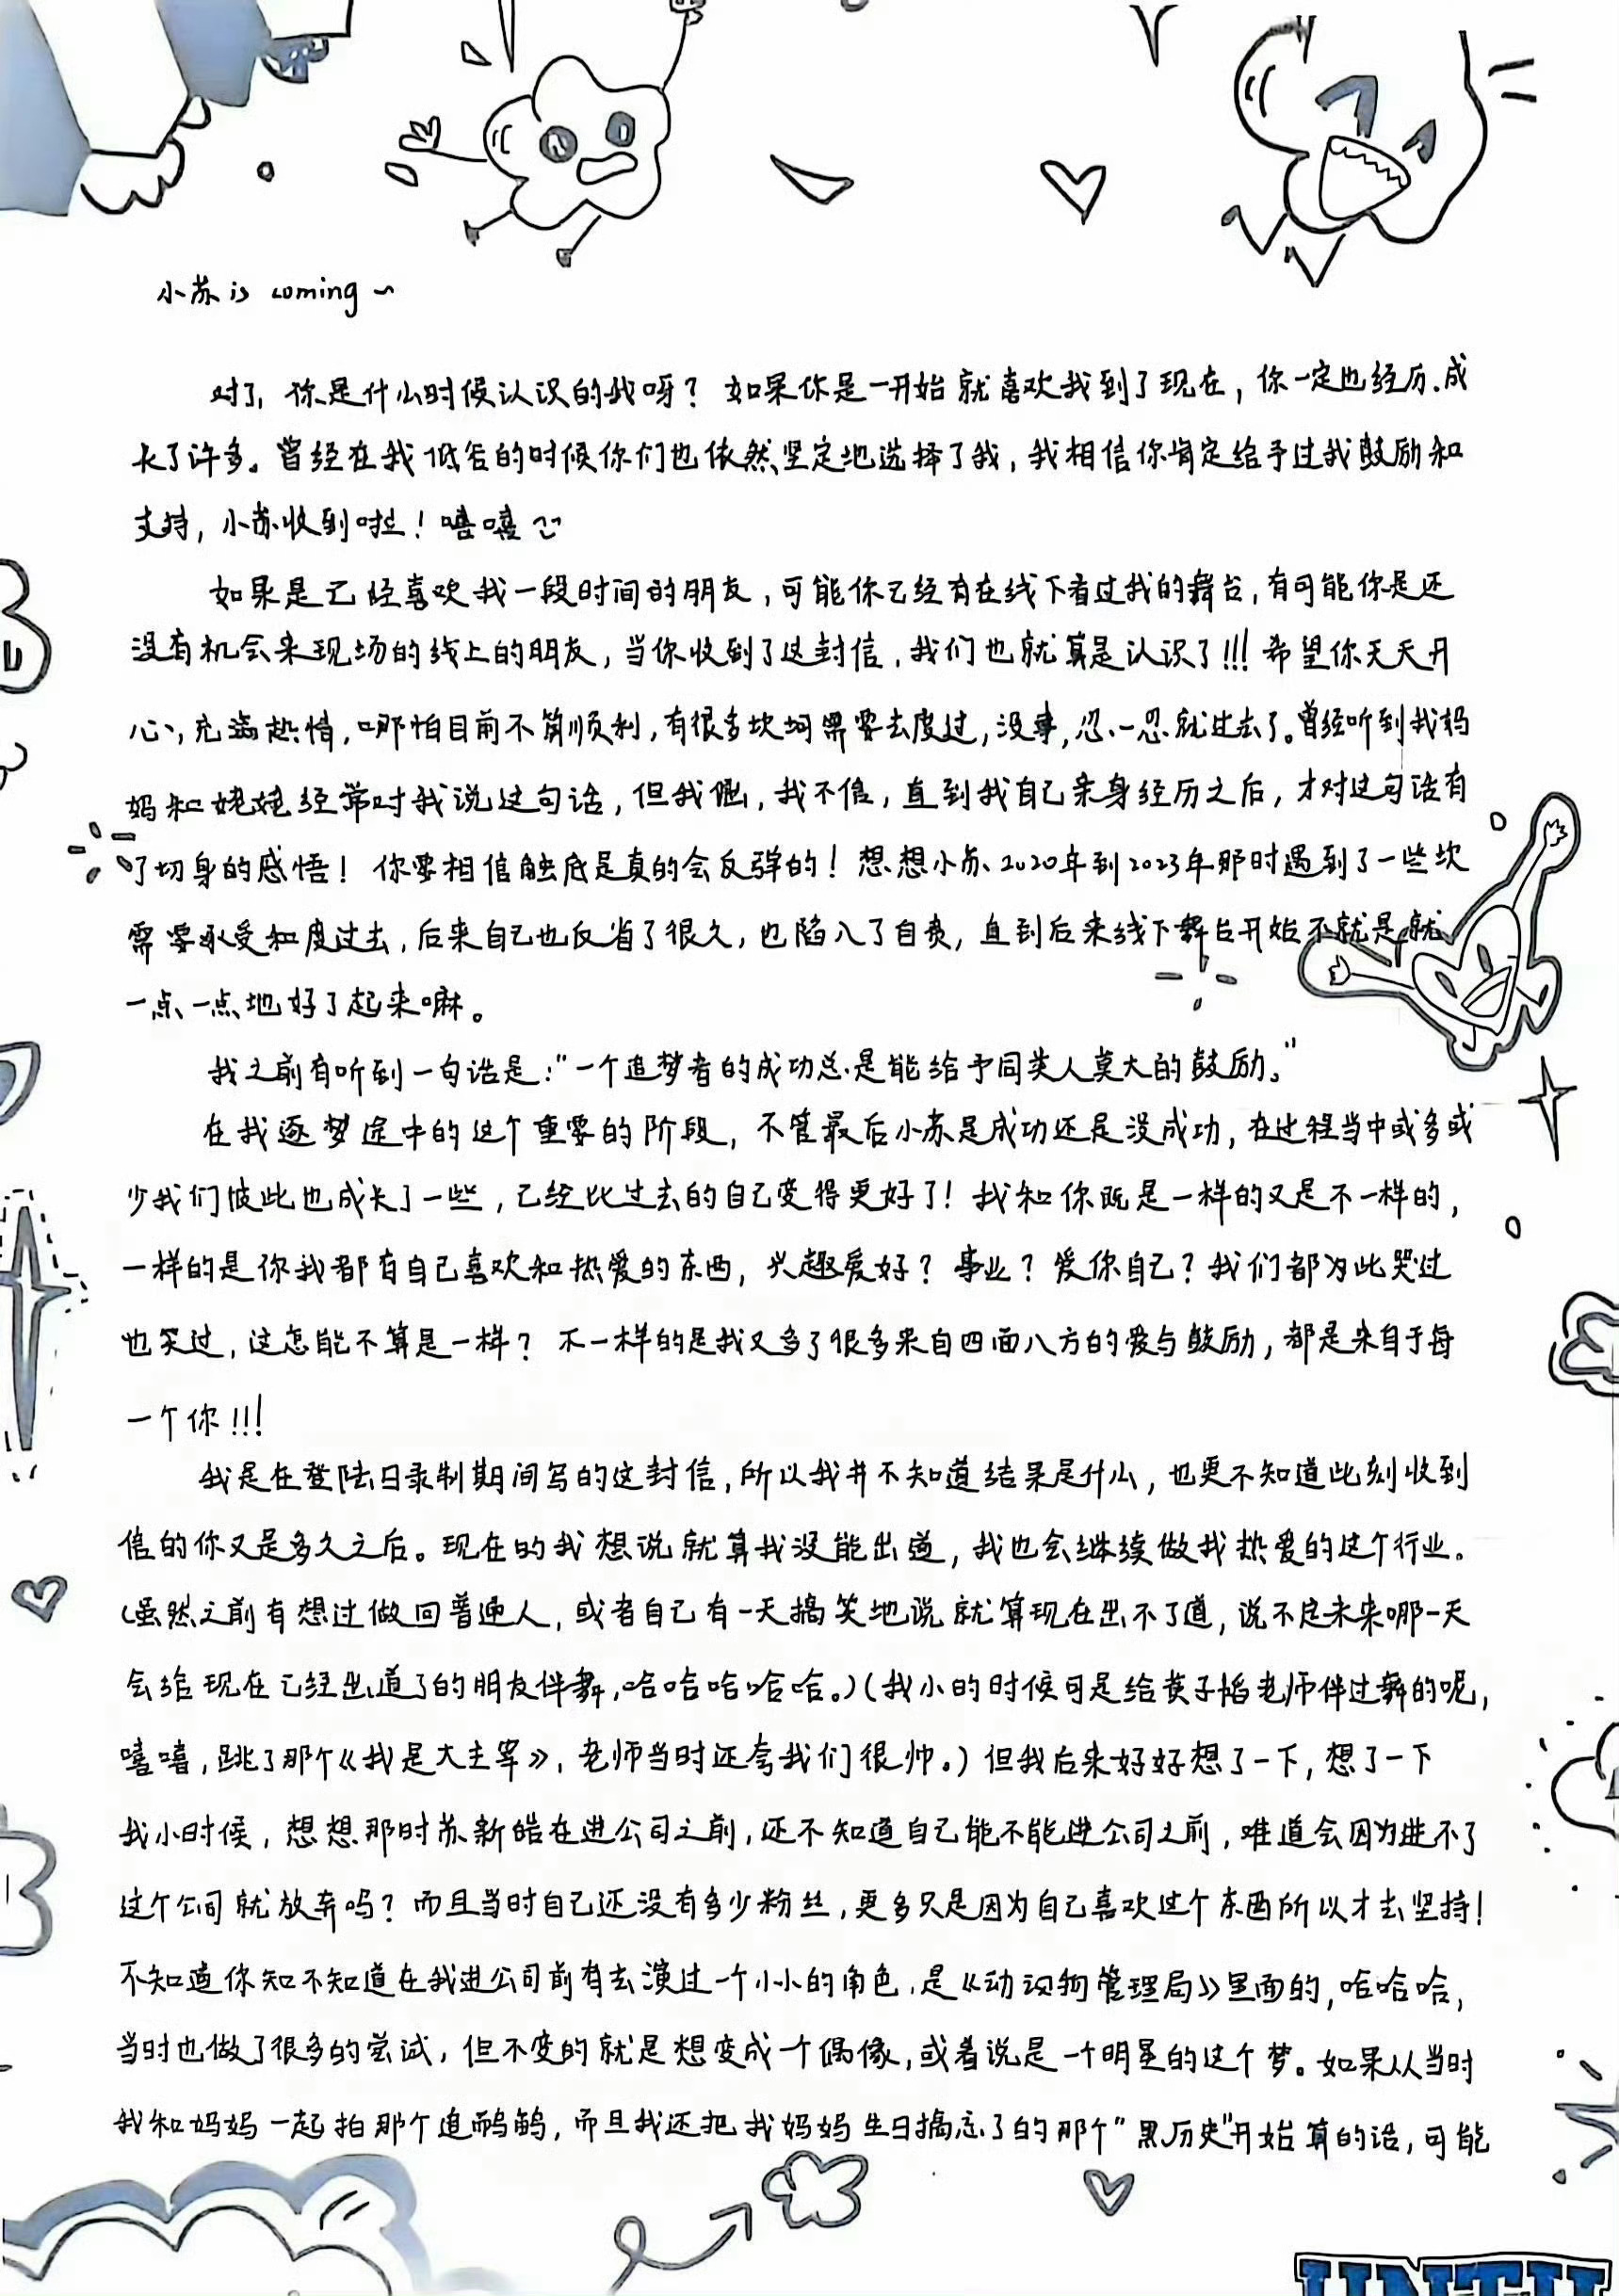 小苏is coming~
对了,你是什么时候认识的我呀?如果你是一开始就喜欢我到了现在,你一定也经历.成
长了许多。曾经在我低谷的时候你们也依然坚定地选择了我,我相信你肯定给予过我鼓励和
支持,小苏收到啦!嘻嘻
如果是已经喜欢我一段时间的朋友,可能你已经有在线下看过我的舞台,有可能你是还
没有机会来现场的线上的朋友,当你收到了这封信,我们也就算是认识了!!!希望你天天开
心,充满热情,哪怕目前不算顺利,有很多坎坷需要去度过,没事,忍一忍就过去了。曾经听到我妈
妈和姥姥经常对我说这句话,但我倔,我不信,直到我自己亲身经历之后,才对这句话有
了切身的感悟!你要相信触底是真的会反弹的!想想小苏2020年到2023年那时遇到了一些坎
需要承受和度过去,后来自己也反省了很久,也陷入了自责,直到后来线下舞台开始不就是就
一点一点地好了起来嘛。
我之前有听到一句话是:"一个追梦者的成功总是能给予同类人莫大的鼓励。"
在我逐梦途中的这个重要的阶段,不管最后小苏是成功还是没成功,在过程当中或多或
少我们彼此也成长了一些,已经比过去的自己变得更好了!我和你既是一样的又是不一样的,
一样的是你我都有自己喜欢和热爱的东西,兴趣爱好?事业?爱你自己?我们都为此哭过
也笑过,这怎能不算是一样?不一样的是我又多了很多来自四面八方的爱与鼓励,都是来自于每
一个你!!!
我是在登陆日录制期间写的这封信,所以我并不知道结果是什么,也更不知道此刻收到
信的你又是多久之后。现在的我想说就算我没能出道,我也会继续做我热爱的这个行业。
(虽然之前有想过做回普通人,或者自己有一天搞笑地说就算现在出不了道,说不定未来哪一天
会给现在已经出道了的朋友伴舞,哈哈哈哈哈。)(我小的时候可是给黄子韬老师伴过舞的呢,
嘻嘻,跳了那个《我是大主宰》,老师当时还夸我们很帅。)但我后来好好想了一下,想了一下
我小时候,想想那时苏新皓在进公司之前,还不知道自己能不能进公司之前,难道会因为进不了
这个公司就放弃吗?而且当时自己还没有多少粉丝,更多只是因为自己喜欢这个东西所以才去坚持!
不知道你知不知道在我进公司前有去演过一个小小的角色,是《动物管理局》里面的,哈哈哈,
当时也做了很多的尝试,但不变的就是想变成一个偶像,或者说是一个明星的这个梦。如果从当时
我和妈妈一起拍那个追鸸鹋,而且我还把我妈妈生日搞忘了的那个"黑历史"开始算的话,可能